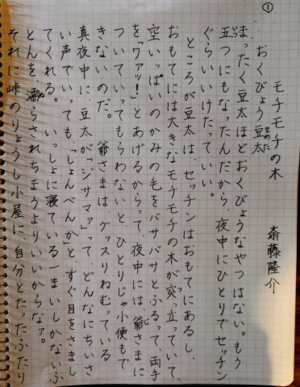 ①
モチモチの木
斎藤隆介
おくびょう豆太
まったく豆太ほどおくびょうなやつはない。もう
五つにもなったんだから夜中にひとりでセッチン
ぐらいいけたっていい。
ところが豆太は、セッチンはおもてにあるし、
おもてには大きなモチモチの木が突っ立っていて、
空いっぱいのかみの毛をバサバサとふるって、両手
を「ワァッ!」とあげるからって、夜中には爺さまに
ついていってもらわないと、ひとりじゃ小便もで
きないのだ。爺さまは、グッスリねむっている
真夜中に、豆太が「ジサマァ」って、どんなにちいさ
い声でいっても、「しょんべんか」と、すぐ目をさまし
てくれる。いっしょに寝ている一まいしかないふ
とんを濡らされちまうよりいいからなァ。
それに峠のりょうし小屋に、自分とたったふたり